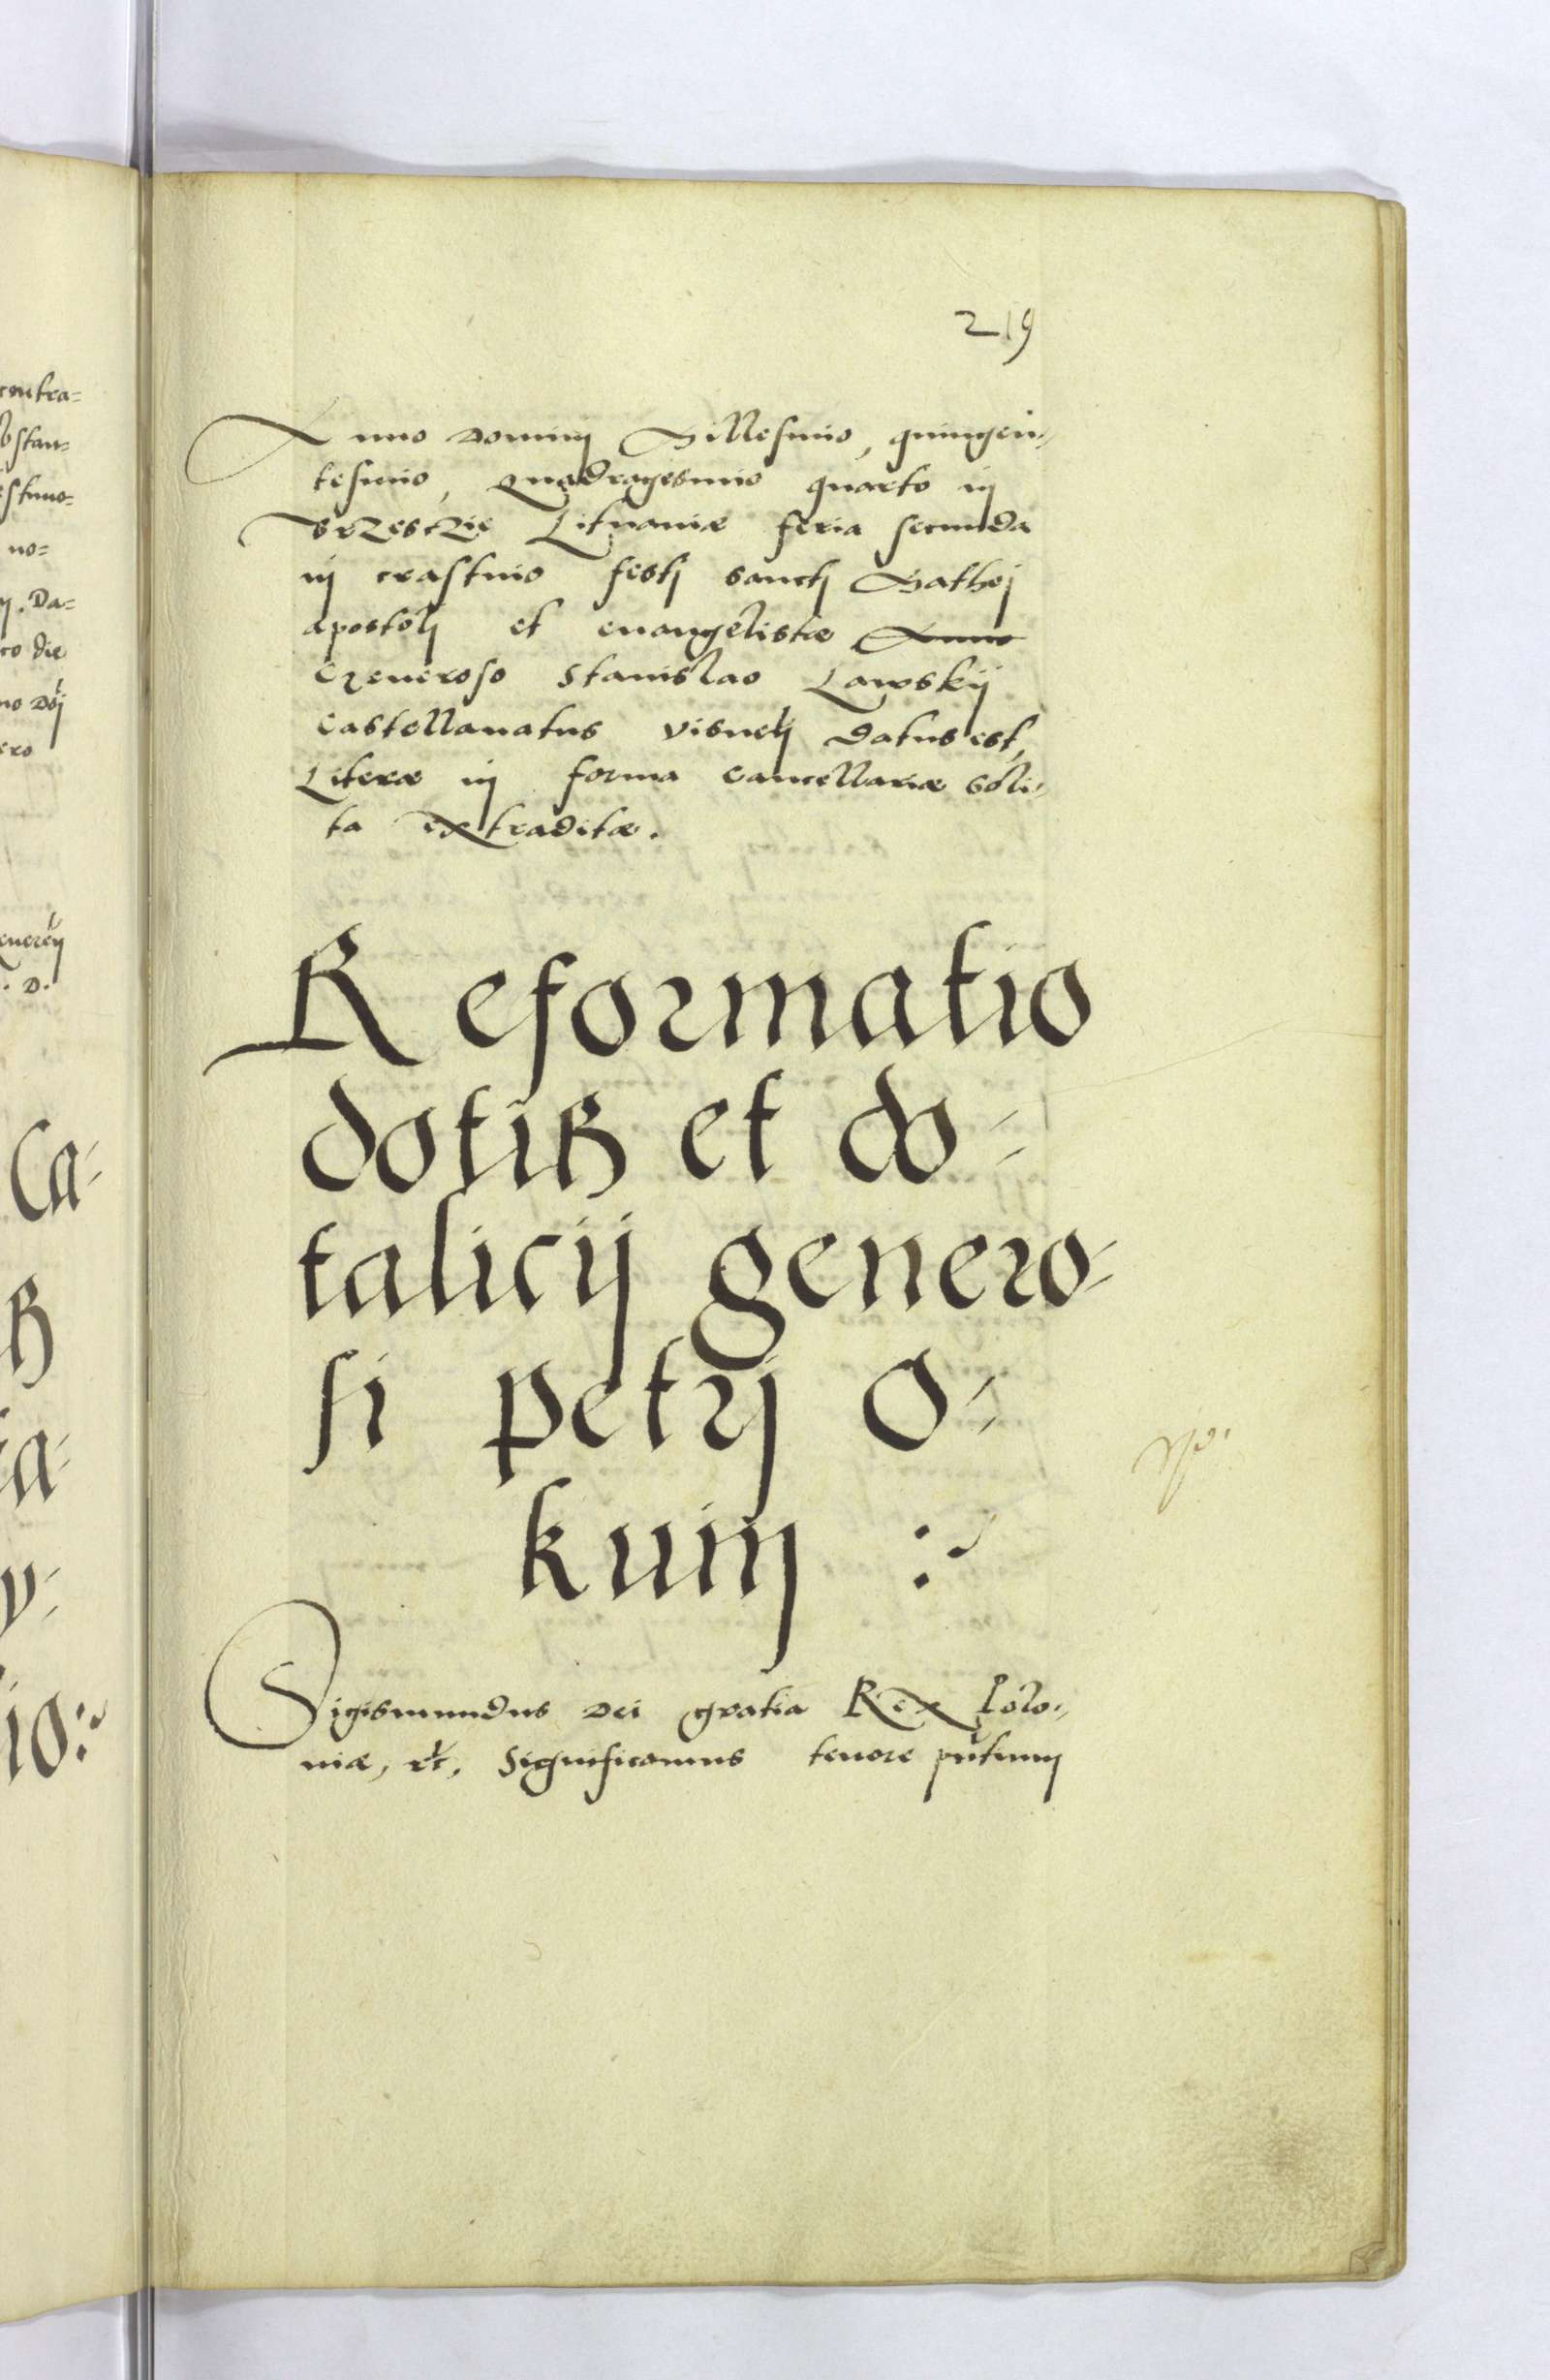 219
Anno Dominj Millesimo, quingen-
tesimo, Quadragesimo quarto in
Brzesczie Lithvaniæ feria secunda
in crastino festi sancti Mathej
apostoli et evangelistæ Anno
Generoso Stanislao Lawskij
Castellanatus visnen datus est,
Literæ in forma cancellariæ soli-
ta extraditæ.
Reformatio
dotis et do-
talicij genero-
si petrj O-
kunij :
Sigismundus Dei gratia Rex Polo-
niæ, etc, Significamus tenore pñtium
contra-
bstan-
no-
Da-
die
ero
D.
Ca-